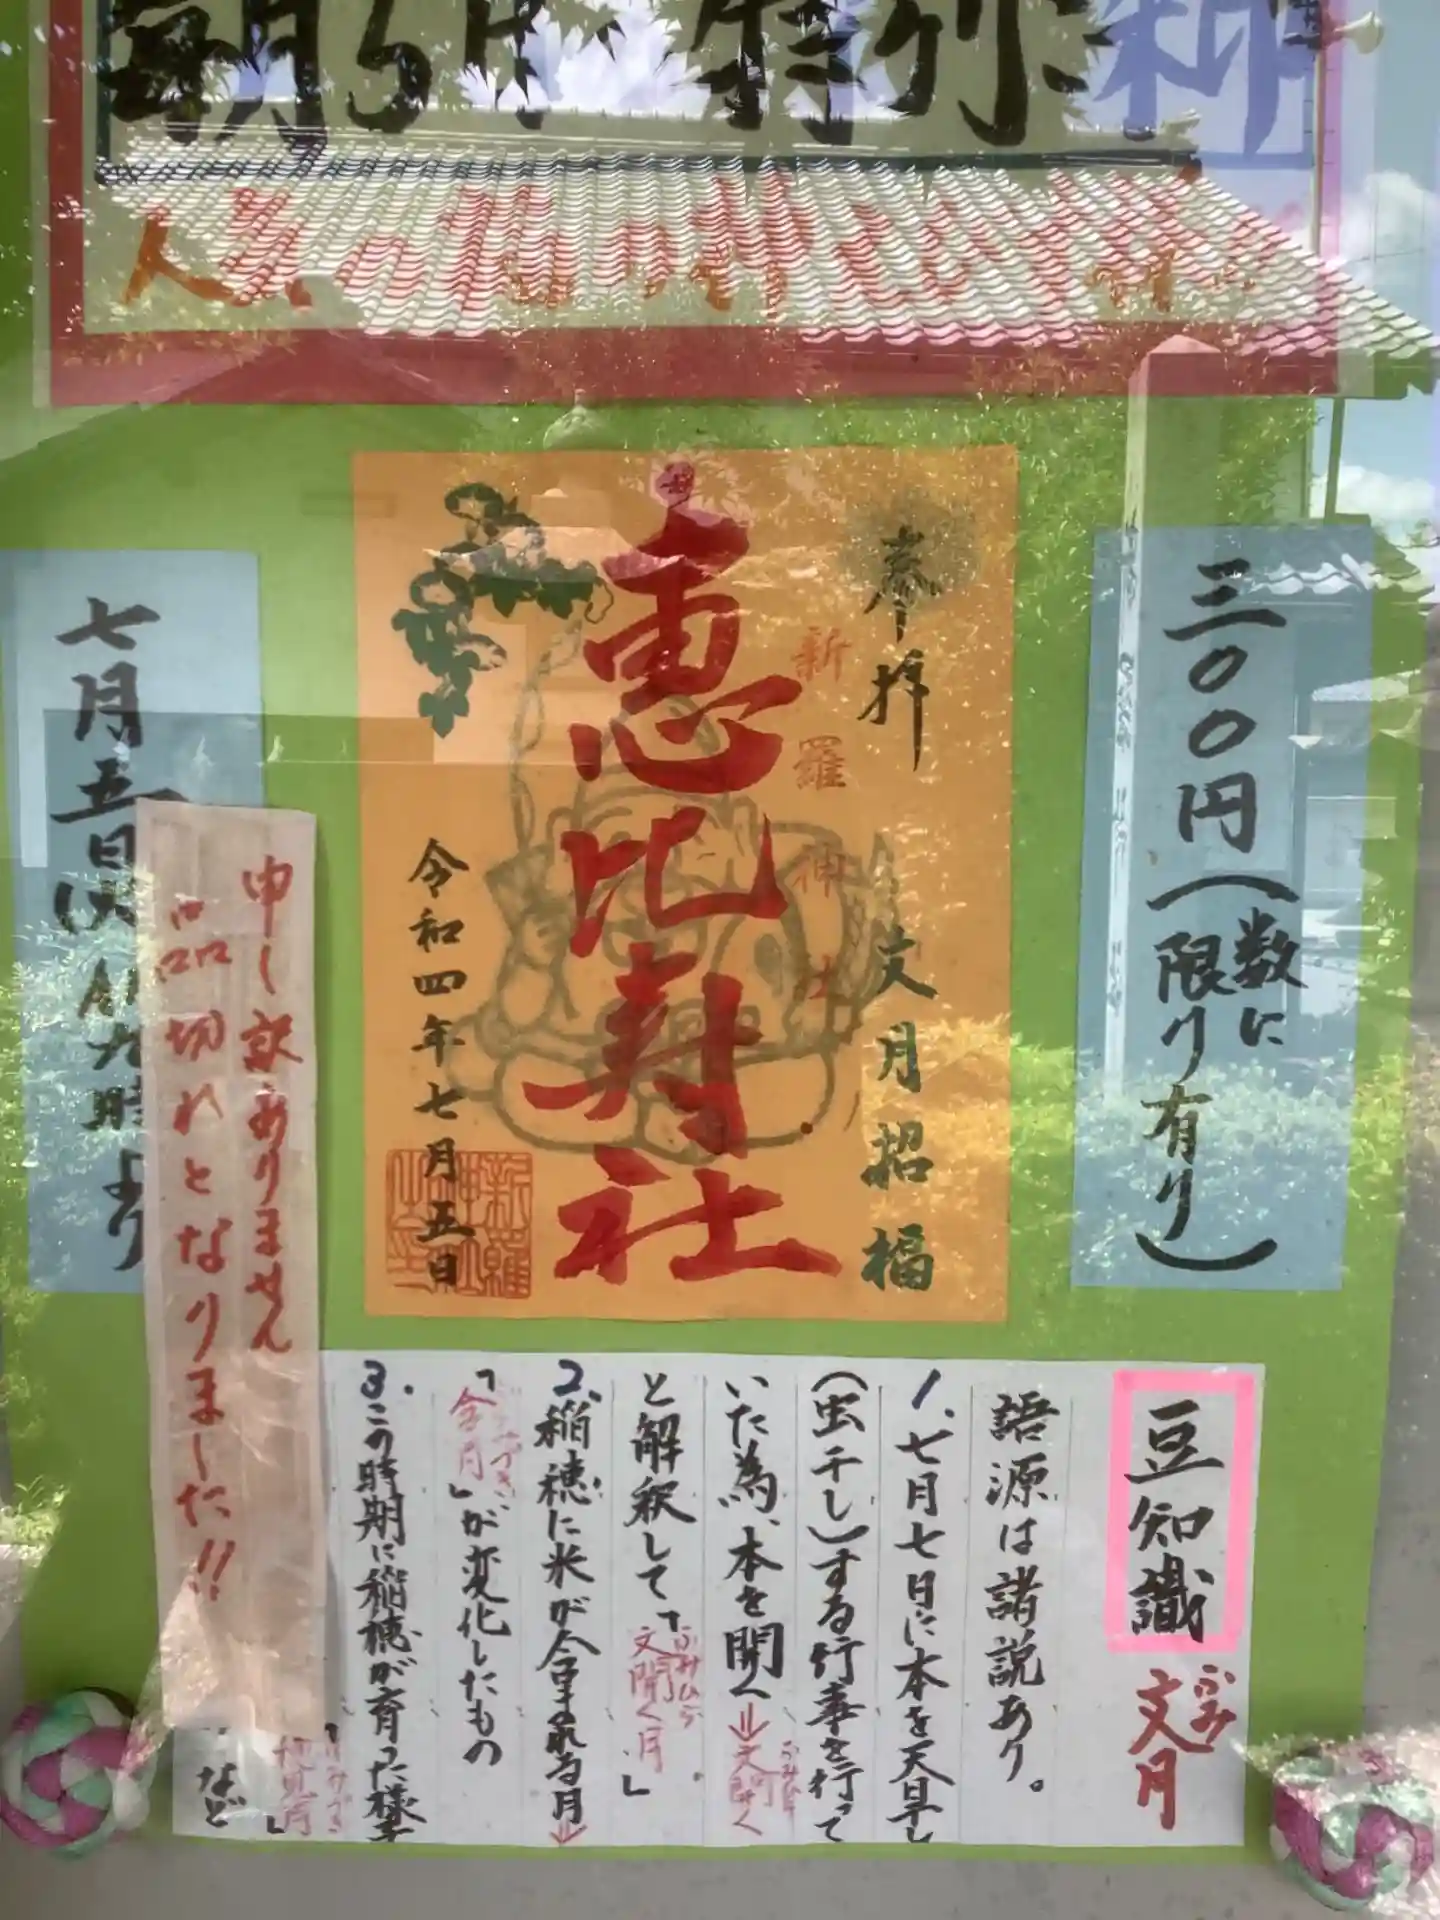 三〇〇円(数に
限り有り)
奉拝
文月招福
新羅神社
恵比寿社
令和四年七月五日
七月五日
九時より
申し訳ありません
品切れとなりました!!
豆知識
文月
ふみ
語源は諸説あり。
1.七月七日に本を天日干し
(虫干し)する行事を行って
いた為、本を開く⇒文開く
と解釈して、「文開く月」
ふみひら
2.稲穂に米が含まれる月⇒
「含月」が変化したもの
3.この時期に稲穂が育った様子
など